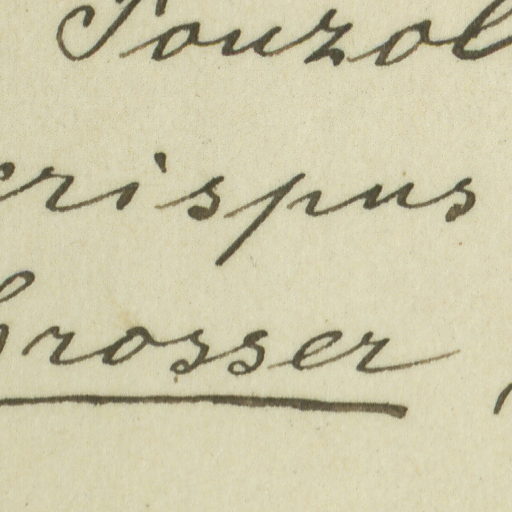 Pouzol
crispus
Grosser